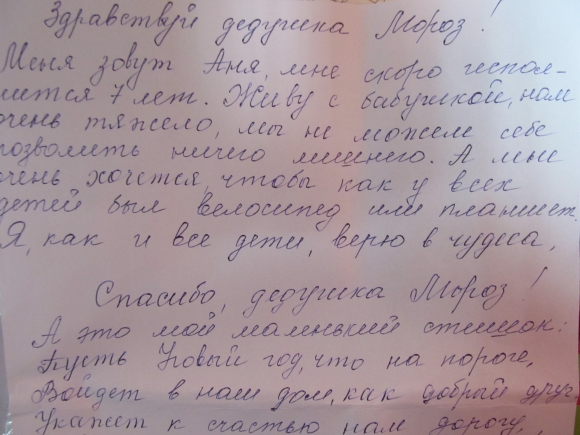 Здравствуй дедушка Мороз!
Меня зовут Аня, мне скоро испол-
нится 7 лет. Живу с бабушкой, нам
очень тяжело, мы не можем себе
позволить ничего лишнего. А мне
очень хочется, чтобы как у всех
детей был велосипед или планшет.
Я, как и все дети, верю в чудеса,
Спасибо, дедушка Мороз!
А это мой маленький стишок:
Пусть Новый год, что на пороге,
Войдет в наш дом, как добрый друг,
Укажет к счастью нам дорогу,